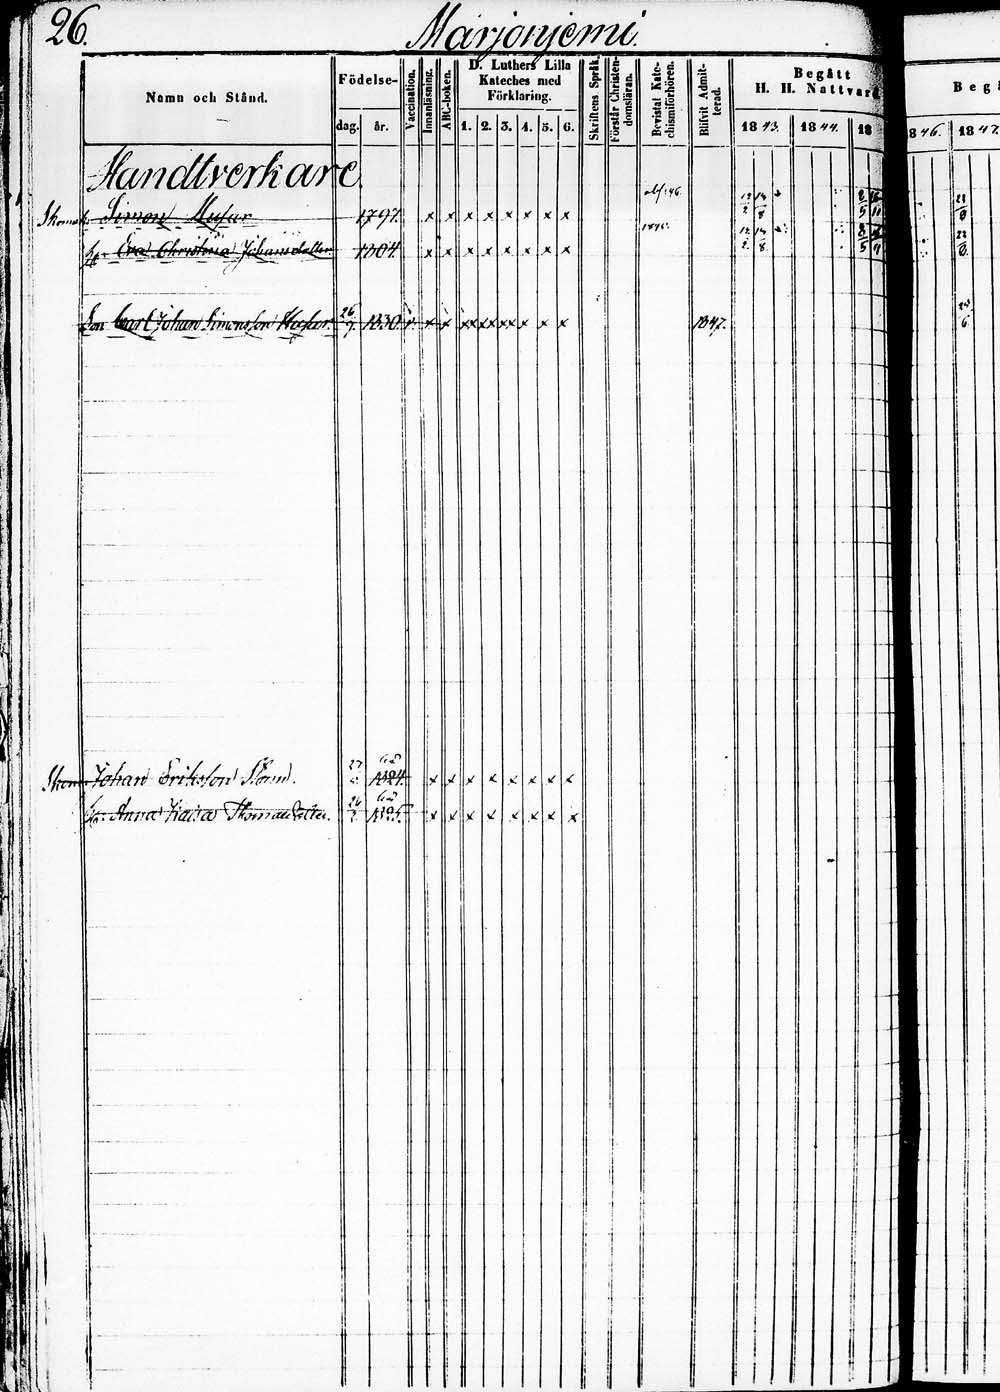 26.
Marjonjemi.
Namn och Stånd.
Födelse-
dag. år.
Vaccination.
Innanläsning.
ABC-boken.
D. Luthers Lilla
Kateches med
Förklaring.
1. 2. 3. 4. 5. 6.
Skriftens Språk.
Förstår Christen-
domsläran.
Bevistat Kate-
chismiförhören.
Blifvit Admit-
terad.
Begått
H. H. Nattvard
1843. 1844. 18
846. 1847.
Handtverkare.
Simon 1797. x x x x x x x x
Eva Christina Johansdotter 1804. x x x x x x x x 1845.
Son Carl Johan Simonsson 26/7 1830. v. x x xx xx xx x x x 1847.
Johan Eriksson 27 1824. x x x x x x x x
Hu: Anna Kaisa Thomasdotter. 26 1825. x x x x x x x x